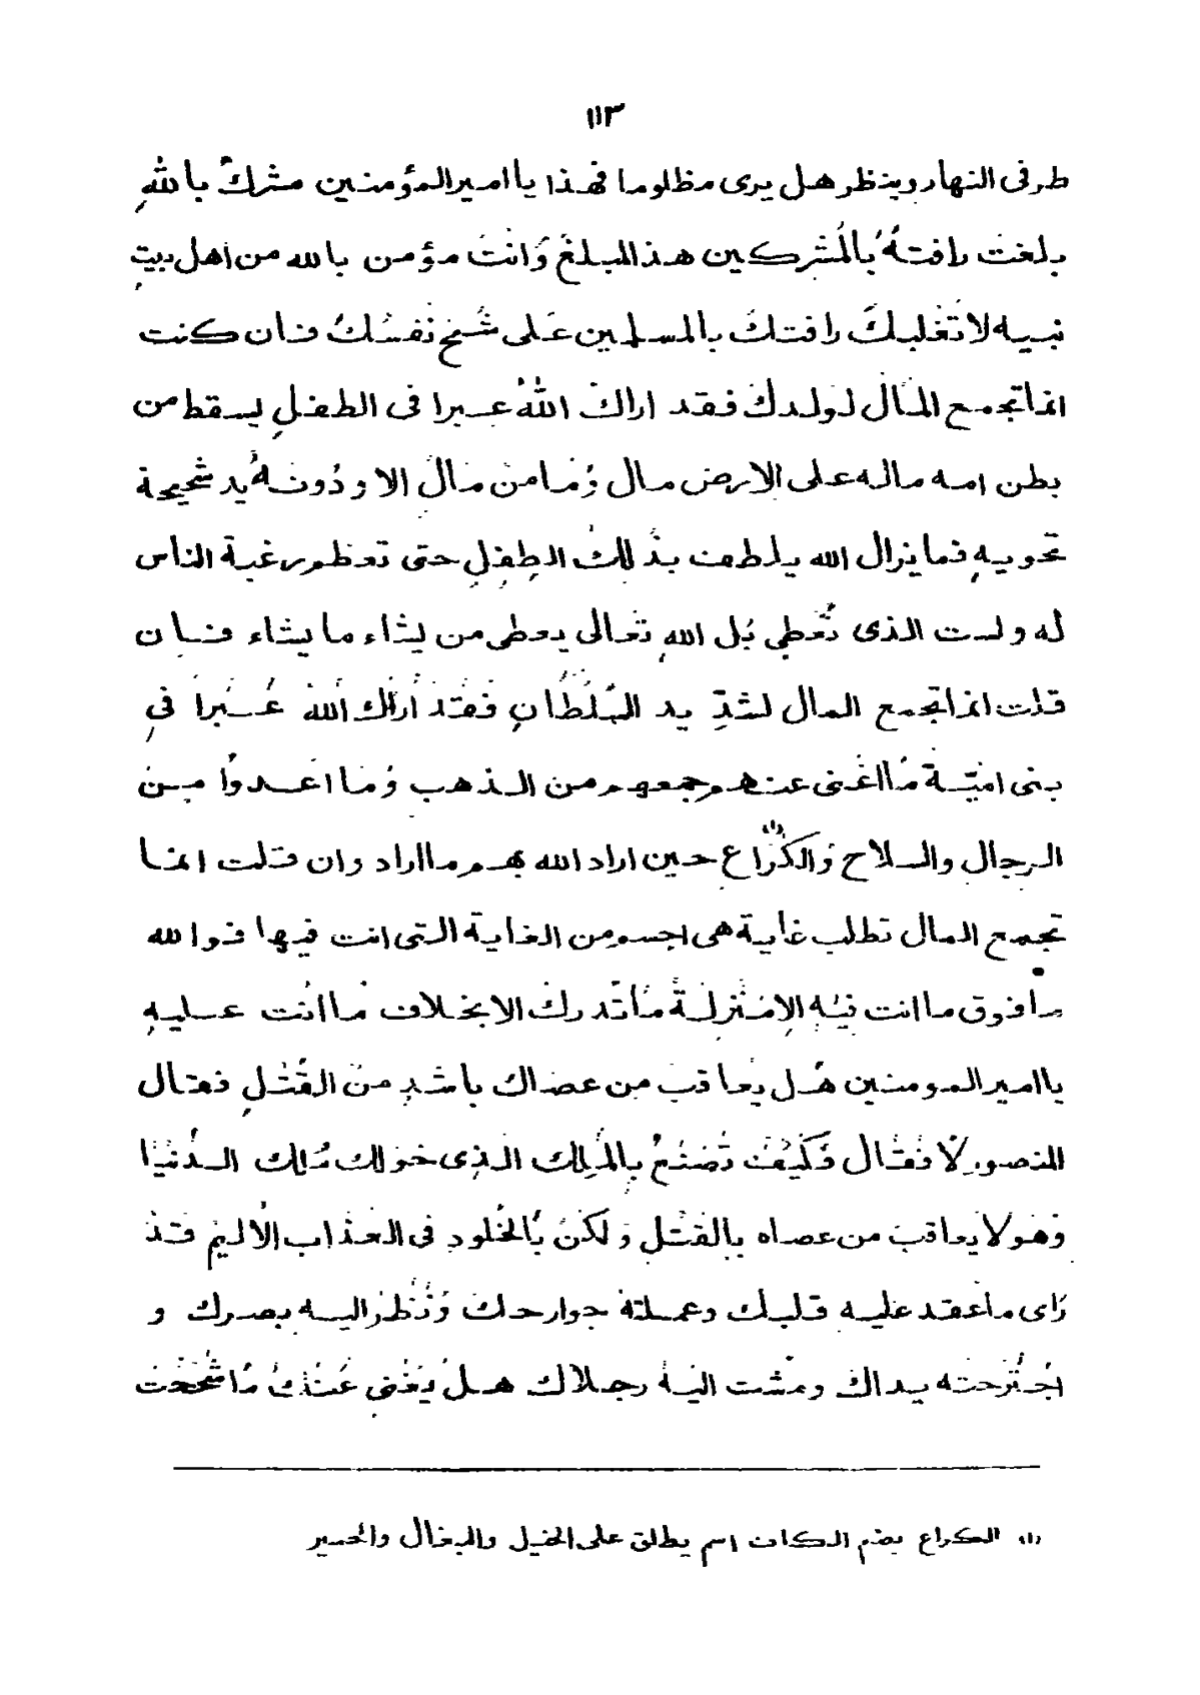 ١١٣
طرفى النهار وينظر هل يرى مظلوما فهذا يا امير المؤمنين مشرك بالله
بلغت رافته بالمشركين هذا المبلغ وانت مؤمن بالله من اهل بيت
نبيه لا تغلبك رافتك بالمسلمين على شح نفسك فان كنت
انما تجمع المال لولدك فقد اراك الله عبرا فى الطفل يسقط من
بطن امه ماله على الارض مال وما من مال الا ودونه يد شحيحة
تحويه فما يزال الله يلطف بذلك الطفل حتى تعظم رغبة الناس
له ولست الذى تعطى بل الله تعالى يعطى من يشاء ما يشاء فان
قلت انما تجمع المال لشديد السلطان فقد اراك الله عبرا فى
بنى امية ما اغنى عنهم جمعهم من الذهب وما اعدوا من
الرجال والسلاح والكراع (١) حين اراد الله بهم ما اراد وان قلت انما
تجمع المال تطلب غاية هى اجسم من الغاية التى انت فيها فوالله
ما فوق ما انت فيه الا منزلة ما تدرك الا بخلاف ما انت عليه
يا امير المومنين هل يعاقب من عصاك باشد من القتل فقال
المنصور لا فقال فكيف تصنع بالملك الذى خولك ملك الدنيا
وهو لا يعاقب من عصاه بالقتل ولكن بالخلود فى العذاب الاليم قد
راى ما عقد عليه قلبك وعملته جوارحك ونظر اليه بصرك و
اجترحته يداك ومشت اليه رجلاك هل يغنى عنك ما شححت
(١) الكراع بضم الكاف اسم يطلق على الخيل والبغال والحمير